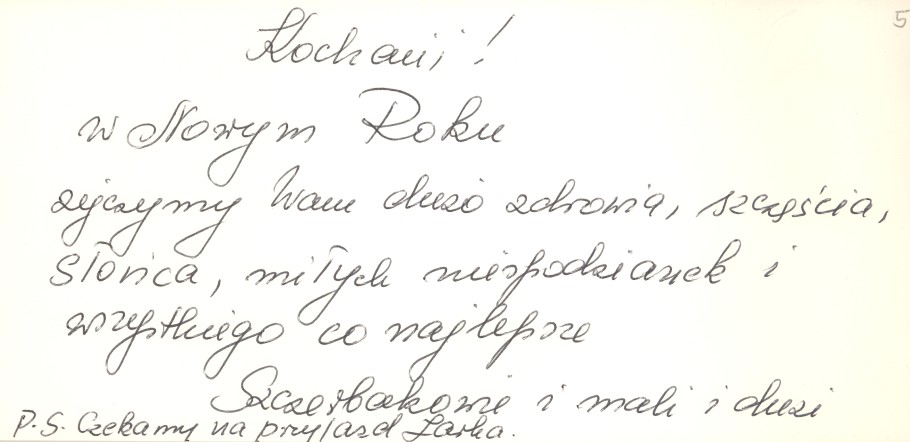 5
Kochani!
w Nowym Roku
życzymy Wam dużo zdrowia, szczęścia,
słońca, miłych niespodzianek i
wszystkiego co najlepsze
Szczerbakowie i mali i duzi
P.S. Czekamy na przyjazd Jarka.